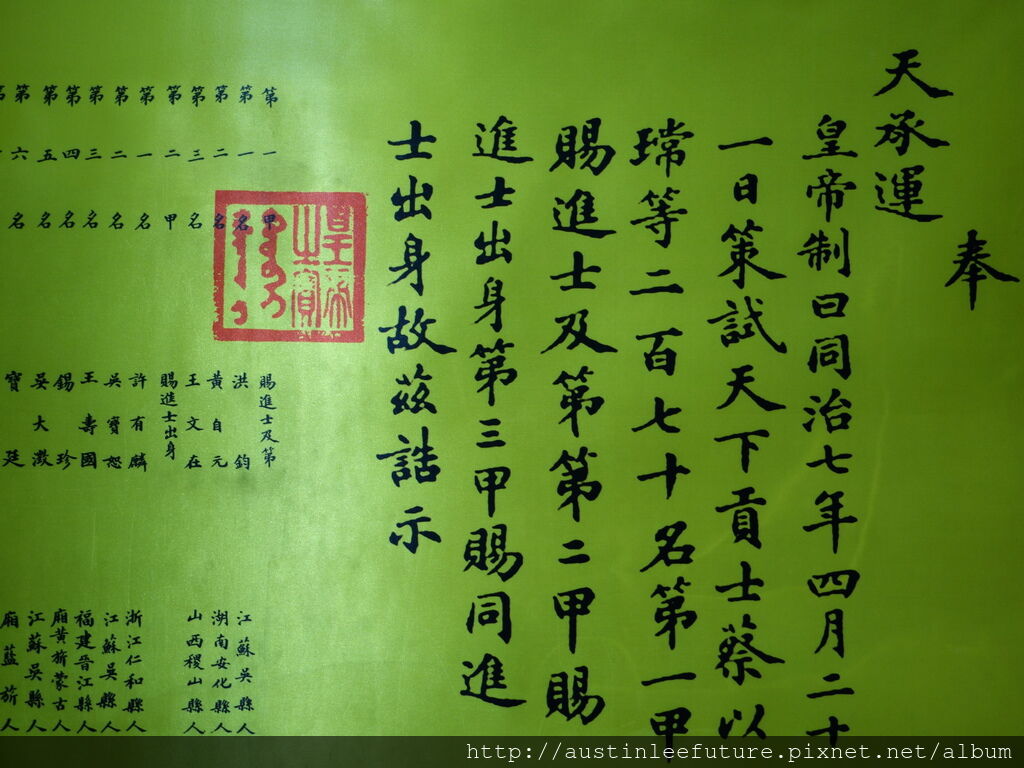 奉
天承運
皇帝制曰同治七年四月二十
一日策試天下貢士蔡以
瑺等二百七十名第一甲
賜進士及第第二甲賜
進士出身第三甲賜同進
士出身故茲誥示
皇帝之寶
第一甲 賜進士及第
第一名 洪鈞 江蘇吳縣人
第二名 黃自元 湖南安化縣人
第三名 王文在 山西稷山縣人
第二甲 賜進士出身
第一名 許有麟 浙江仁和縣人
第二名 吳寶恕 江蘇吳縣人
第三名 王壽國 福建晉江縣人
第四名 錫珍 廂黃旂蒙古人
第五名 吳大澂 江蘇吳縣人
第六名 寶廷 廂藍旂人
http://austinleefuture.pixnet.net/album